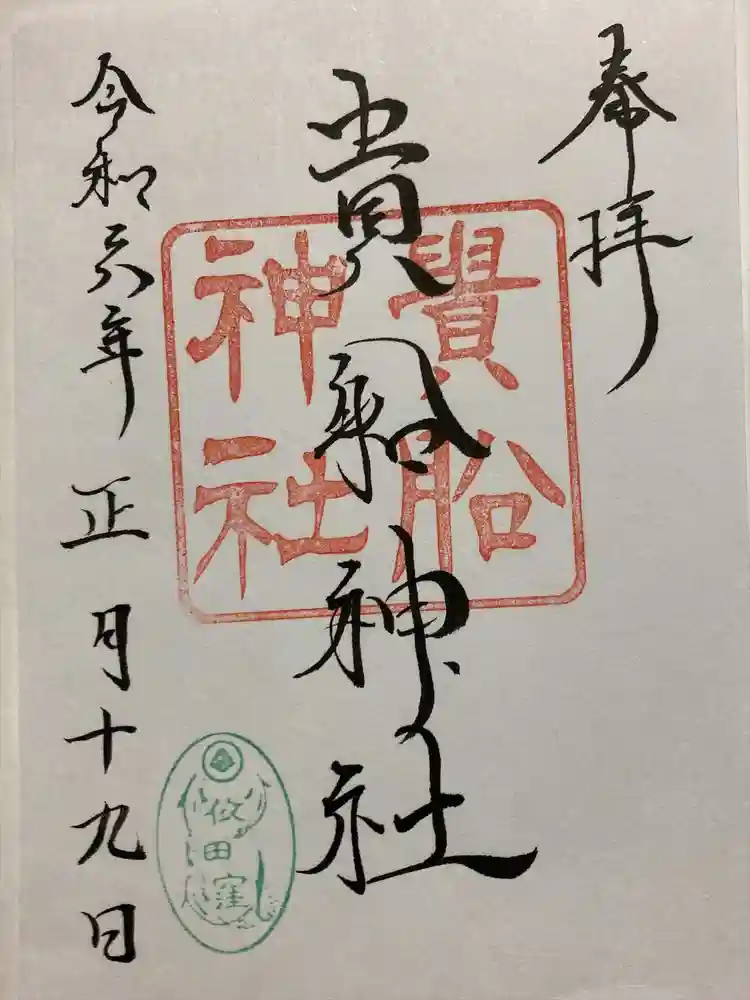 奉拝
貴船神社
貴船
神社
令和六年正月十九日
田窪